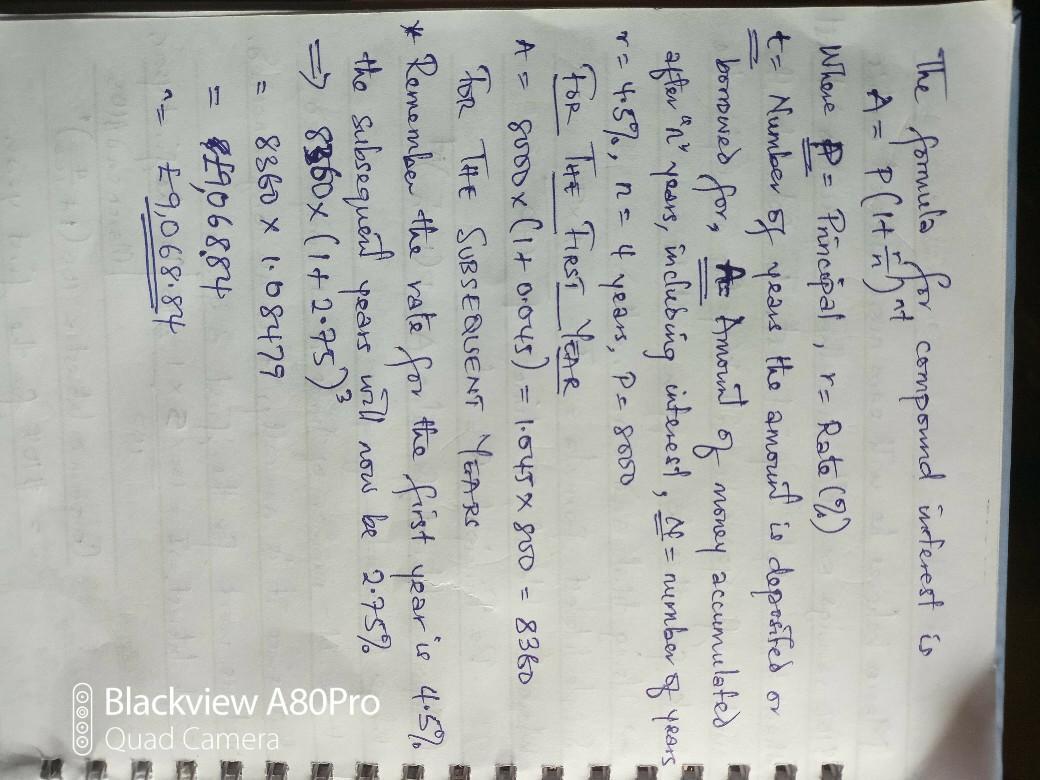 The formula for compound interest is
A = P(1+r/n)^nt
Where P = Principal, r = Rate (%)
t = Number of years the amount is deposited or
borrowed for, A = Amount of money accumulated
after "n" years, including interest, N = number of years
r = 4.5%, n = 4 years, P = 8000
FOR THE FIRST YEAR
A = 8000 x (1 + 0.045) = 1.045 x 800 = 8360
FOR THE SUBSEQUENT YEARS
* Remember the rate for the first year is 4.5%
the subsequent years will now be 2.75%
⇒ 8360 x (1 + 2.75)^3
= 8360 x 1.08479
= £9,068.84
^= £9,068.84
Blackview A80Pro
Quad Camera